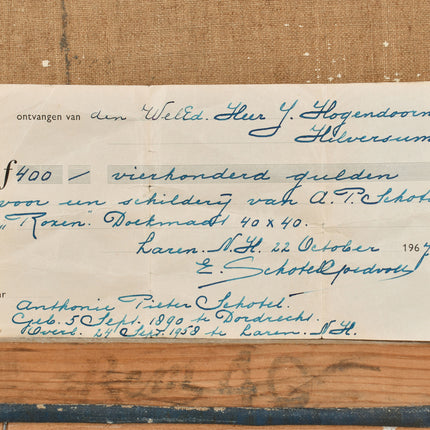 ontvangen van den WelEd. Heer Y. Hogendoorn
Hilversum
f 400 / vierhonderd gulden
voor een schilderij van A. P. Schotel
„Rozen". Doekmaat 40 x 40.
Laren. N.H. 22 October 196
E. Schotel
Anthonie Pieter Schotel.
Geb. 5 Sept. 1890 te Dordrecht.
Overl. 24 Sept. 1958 te Laren. N.H.
40